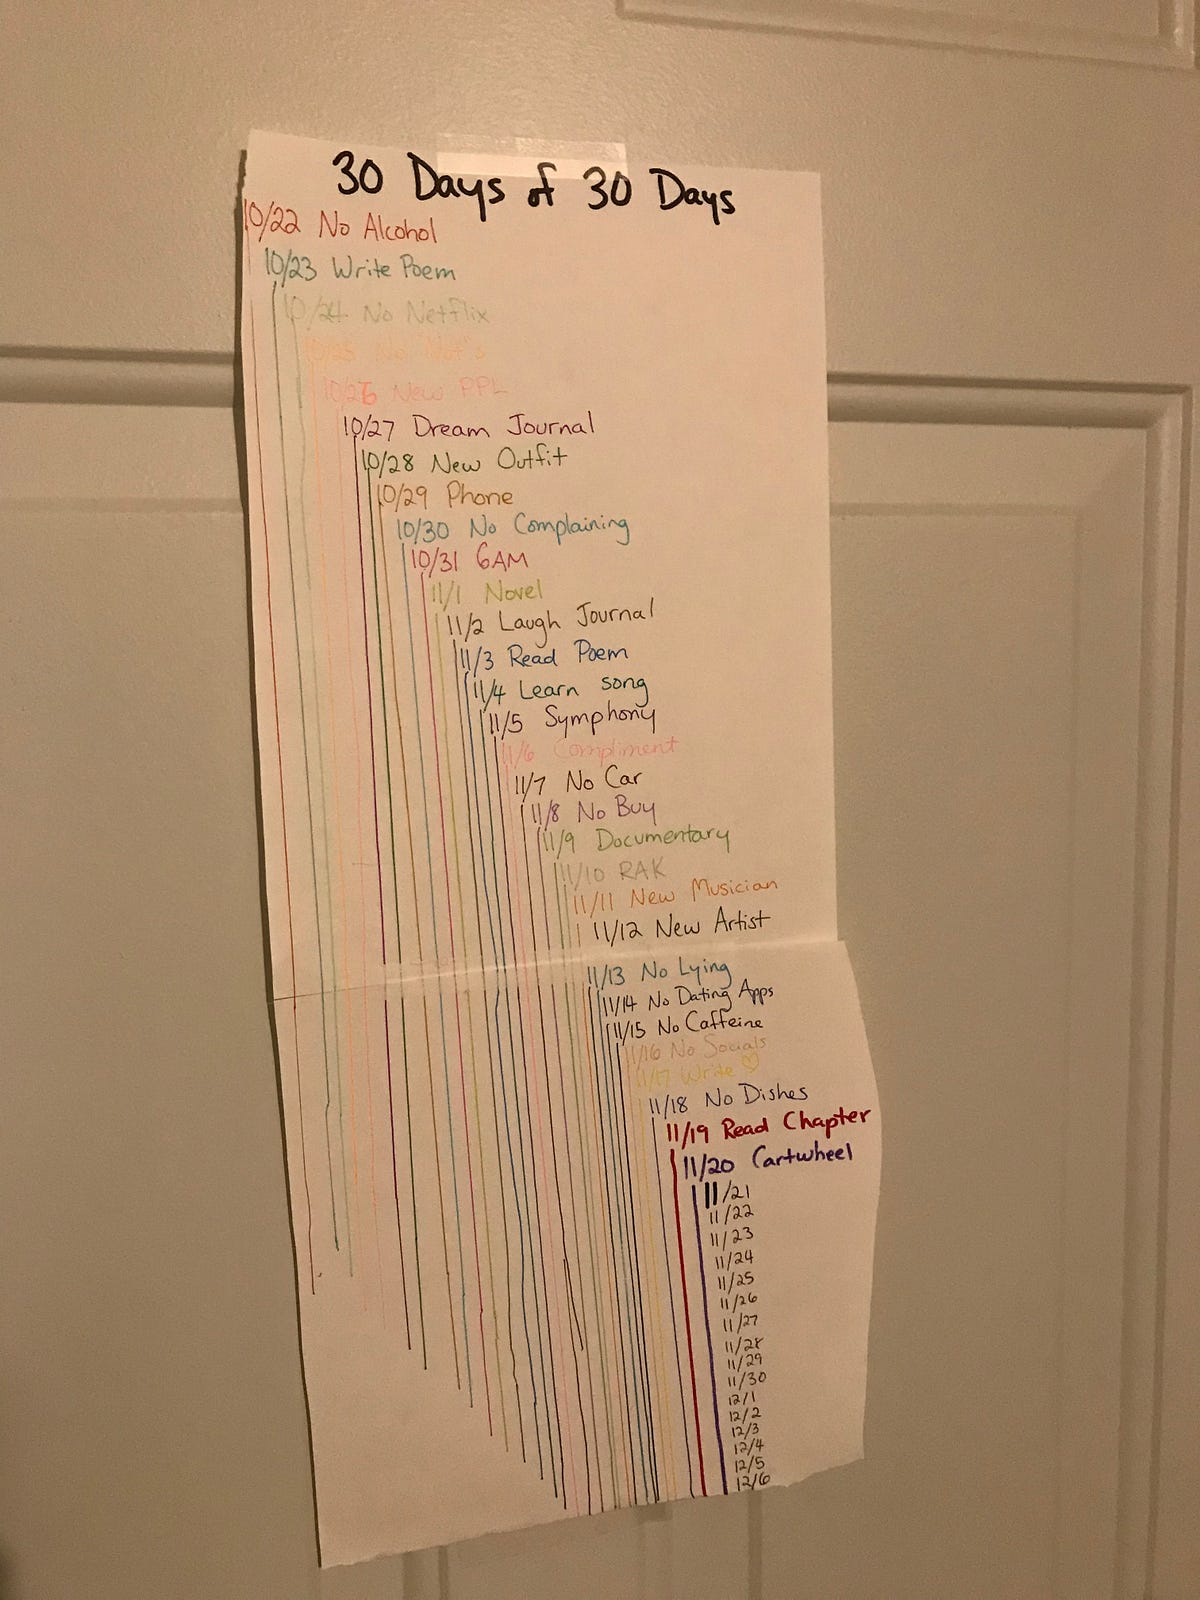 30 Days of 30 Days
10/22 No Alcohol
10/23 Write Poem
10/24 No Netflix
10/25 No
10/26 New PPL
10/27 Dream Journal
10/28 New Outfit
10/29 Phone
10/30 No Complaining
10/31 6AM
11/1 Novel
11/2 Laugh Journal
11/3 Read Poem
11/4 Learn song
11/5 Symphony
11/6 Compliment
11/7 No Car
11/8 No Buy
11/9 Documentary
11/10 RAK
11/11 New Musician
11/12 New Artist
11/13 No Lying
11/14 No Dating Apps
11/15 No Caffeine
11/16 No Socials
11/17 Write ♡
11/18 No Dishes
11/19 Read Chapter
11/20 Cartwheel
11/21
11/22
11/23
11/24
11/25
11/26
11/27
11/28
11/29
11/30
12/1
12/2
12/3
12/4
12/5
12/6